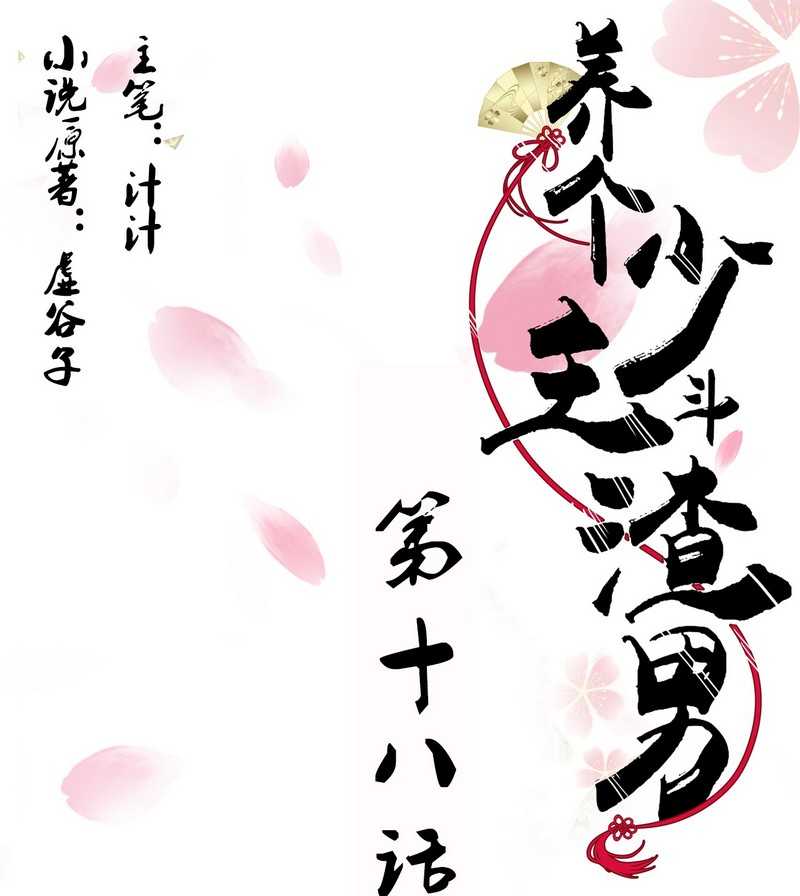 养个少主斗渣男
第十八话
主笔：汁汁
小说原著：虚谷子